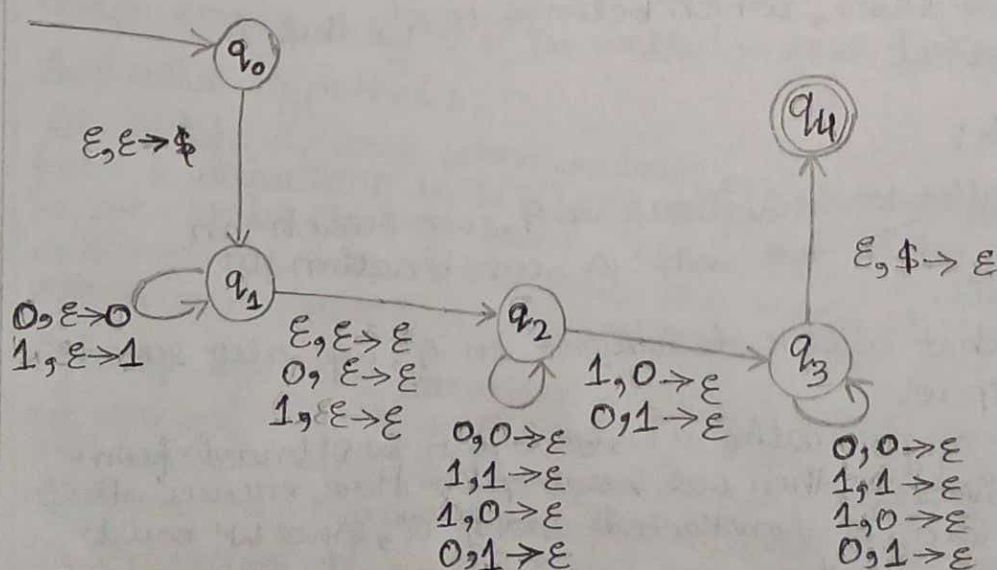 q₀
ε,ε→$
q₁
0,ε→0
1,ε→1
ε,ε→ε
0,ε→ε
1,ε→ε
q₂
0,0→ε
1,1→ε
1,0→ε
0,1→ε
1,0→ε
0,1→ε
q₃
0,0→ε
1,1→ε
1,0→ε
0,1→ε
ε,$→ε
q₄